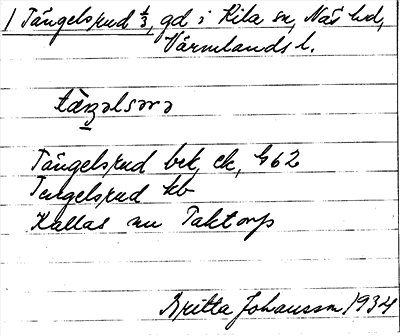 1 Tängelsrud 1/3, gd i Kila sn, Näs hd,
Värmlands l.
täŋəlsərə
Tängelsrud bek, ek, G62
Tengelsrud kb
Kallas nu Taktorp
Britta Johansson 1934